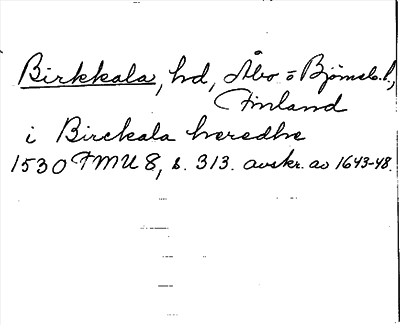 Birkkala, hd, Åbo o Björneb. l,
Finland
i Birckala heredhe
1530 FMU 8, s. 313. avskr. av 1643-48.